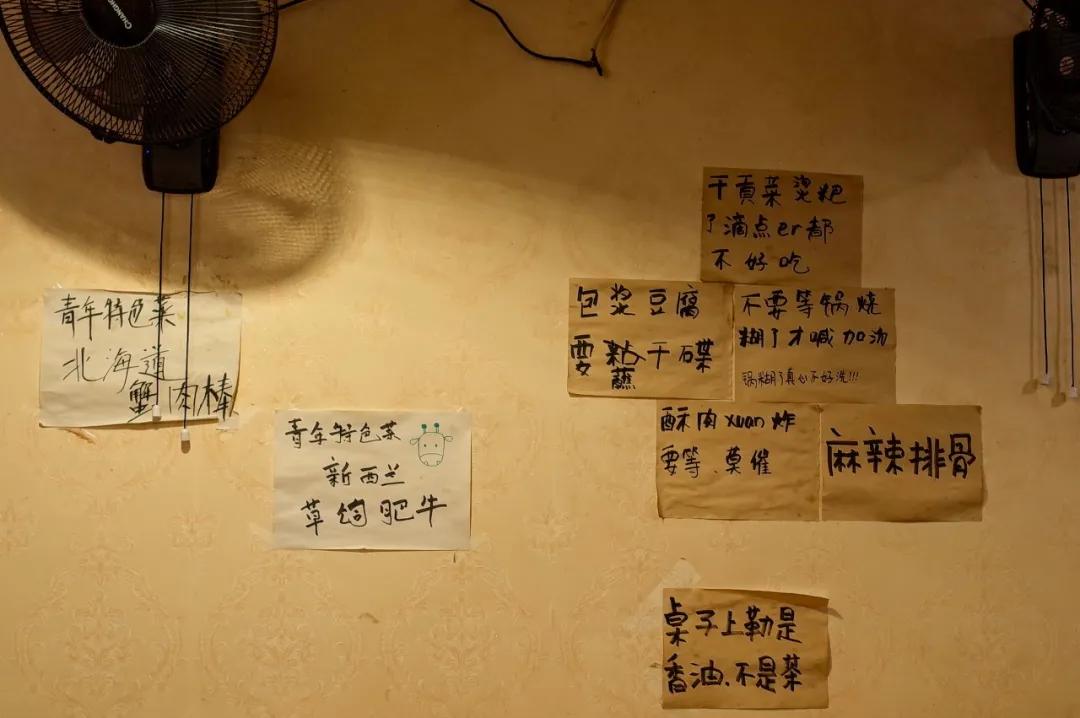 青年特色菜
北海道
蟹肉棒
青年特色菜
新西兰
草饲肥牛
干贡菜烫粑
了滴点er都
不好吃
包浆豆腐
要粘干碟
蘸
不要等锅烧
糊了才喊加汤
锅糊了真心不好洗!!!
酥肉xuan炸
要等、莫催
麻辣排骨
桌子上勒是
香油、不是茶